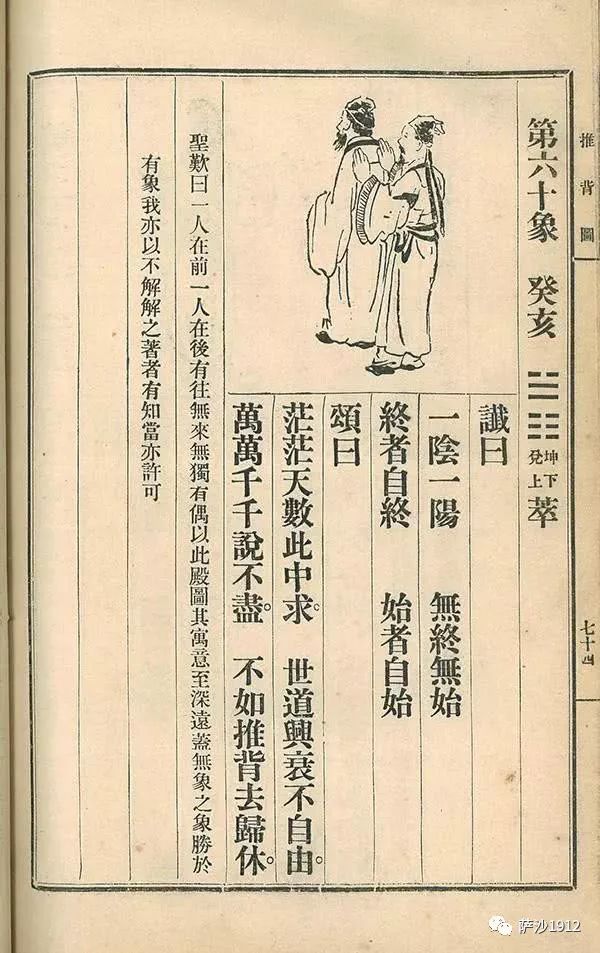 推背圖
七十四
第六十象 癸亥 ䷬ 坤下兌上 萃
讖曰
一陰一陽 無終無始
終者自終 始者自始
頌曰
茫茫天數此中求。 世道興衰不自由。
萬萬千千說不盡。 不如推背去歸休。
聖歎曰一人在前一人在後有往無來無獨有偶以此殿圖其寓意至深遠蓋無象之象勝於
有象我亦以不解解之著者有知當亦許可
萨沙1912